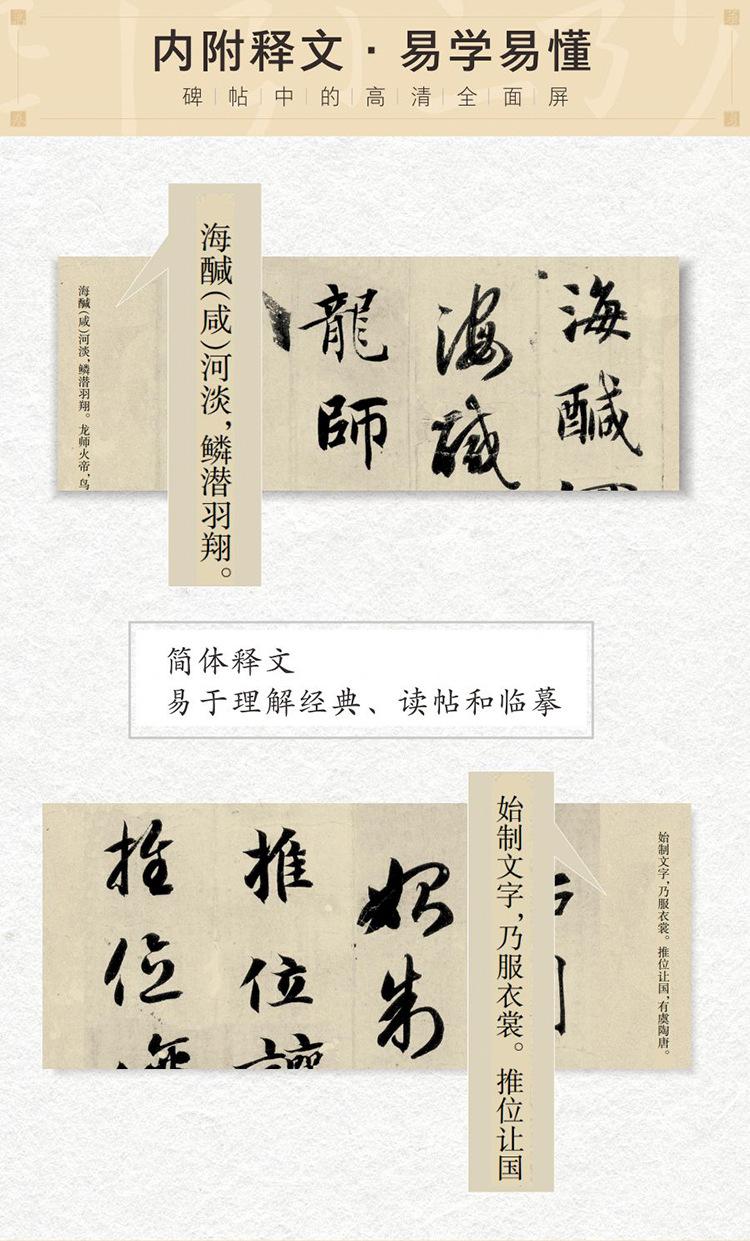 内附释文·易学易懂
碑帖中的高清全面屏
海鹹
海鹹
龍師
海醎（咸）河淡，鳞潜羽翔。
海醎（咸）河淡，鳞潜羽翔。龙师火帝，鸟
简体释文
易于理解经典、读帖和临摹
始制文字，乃服衣裳。推位让国，有虞陶唐。
始制文字，乃服衣裳。推位让国
始制
推位讓
推位